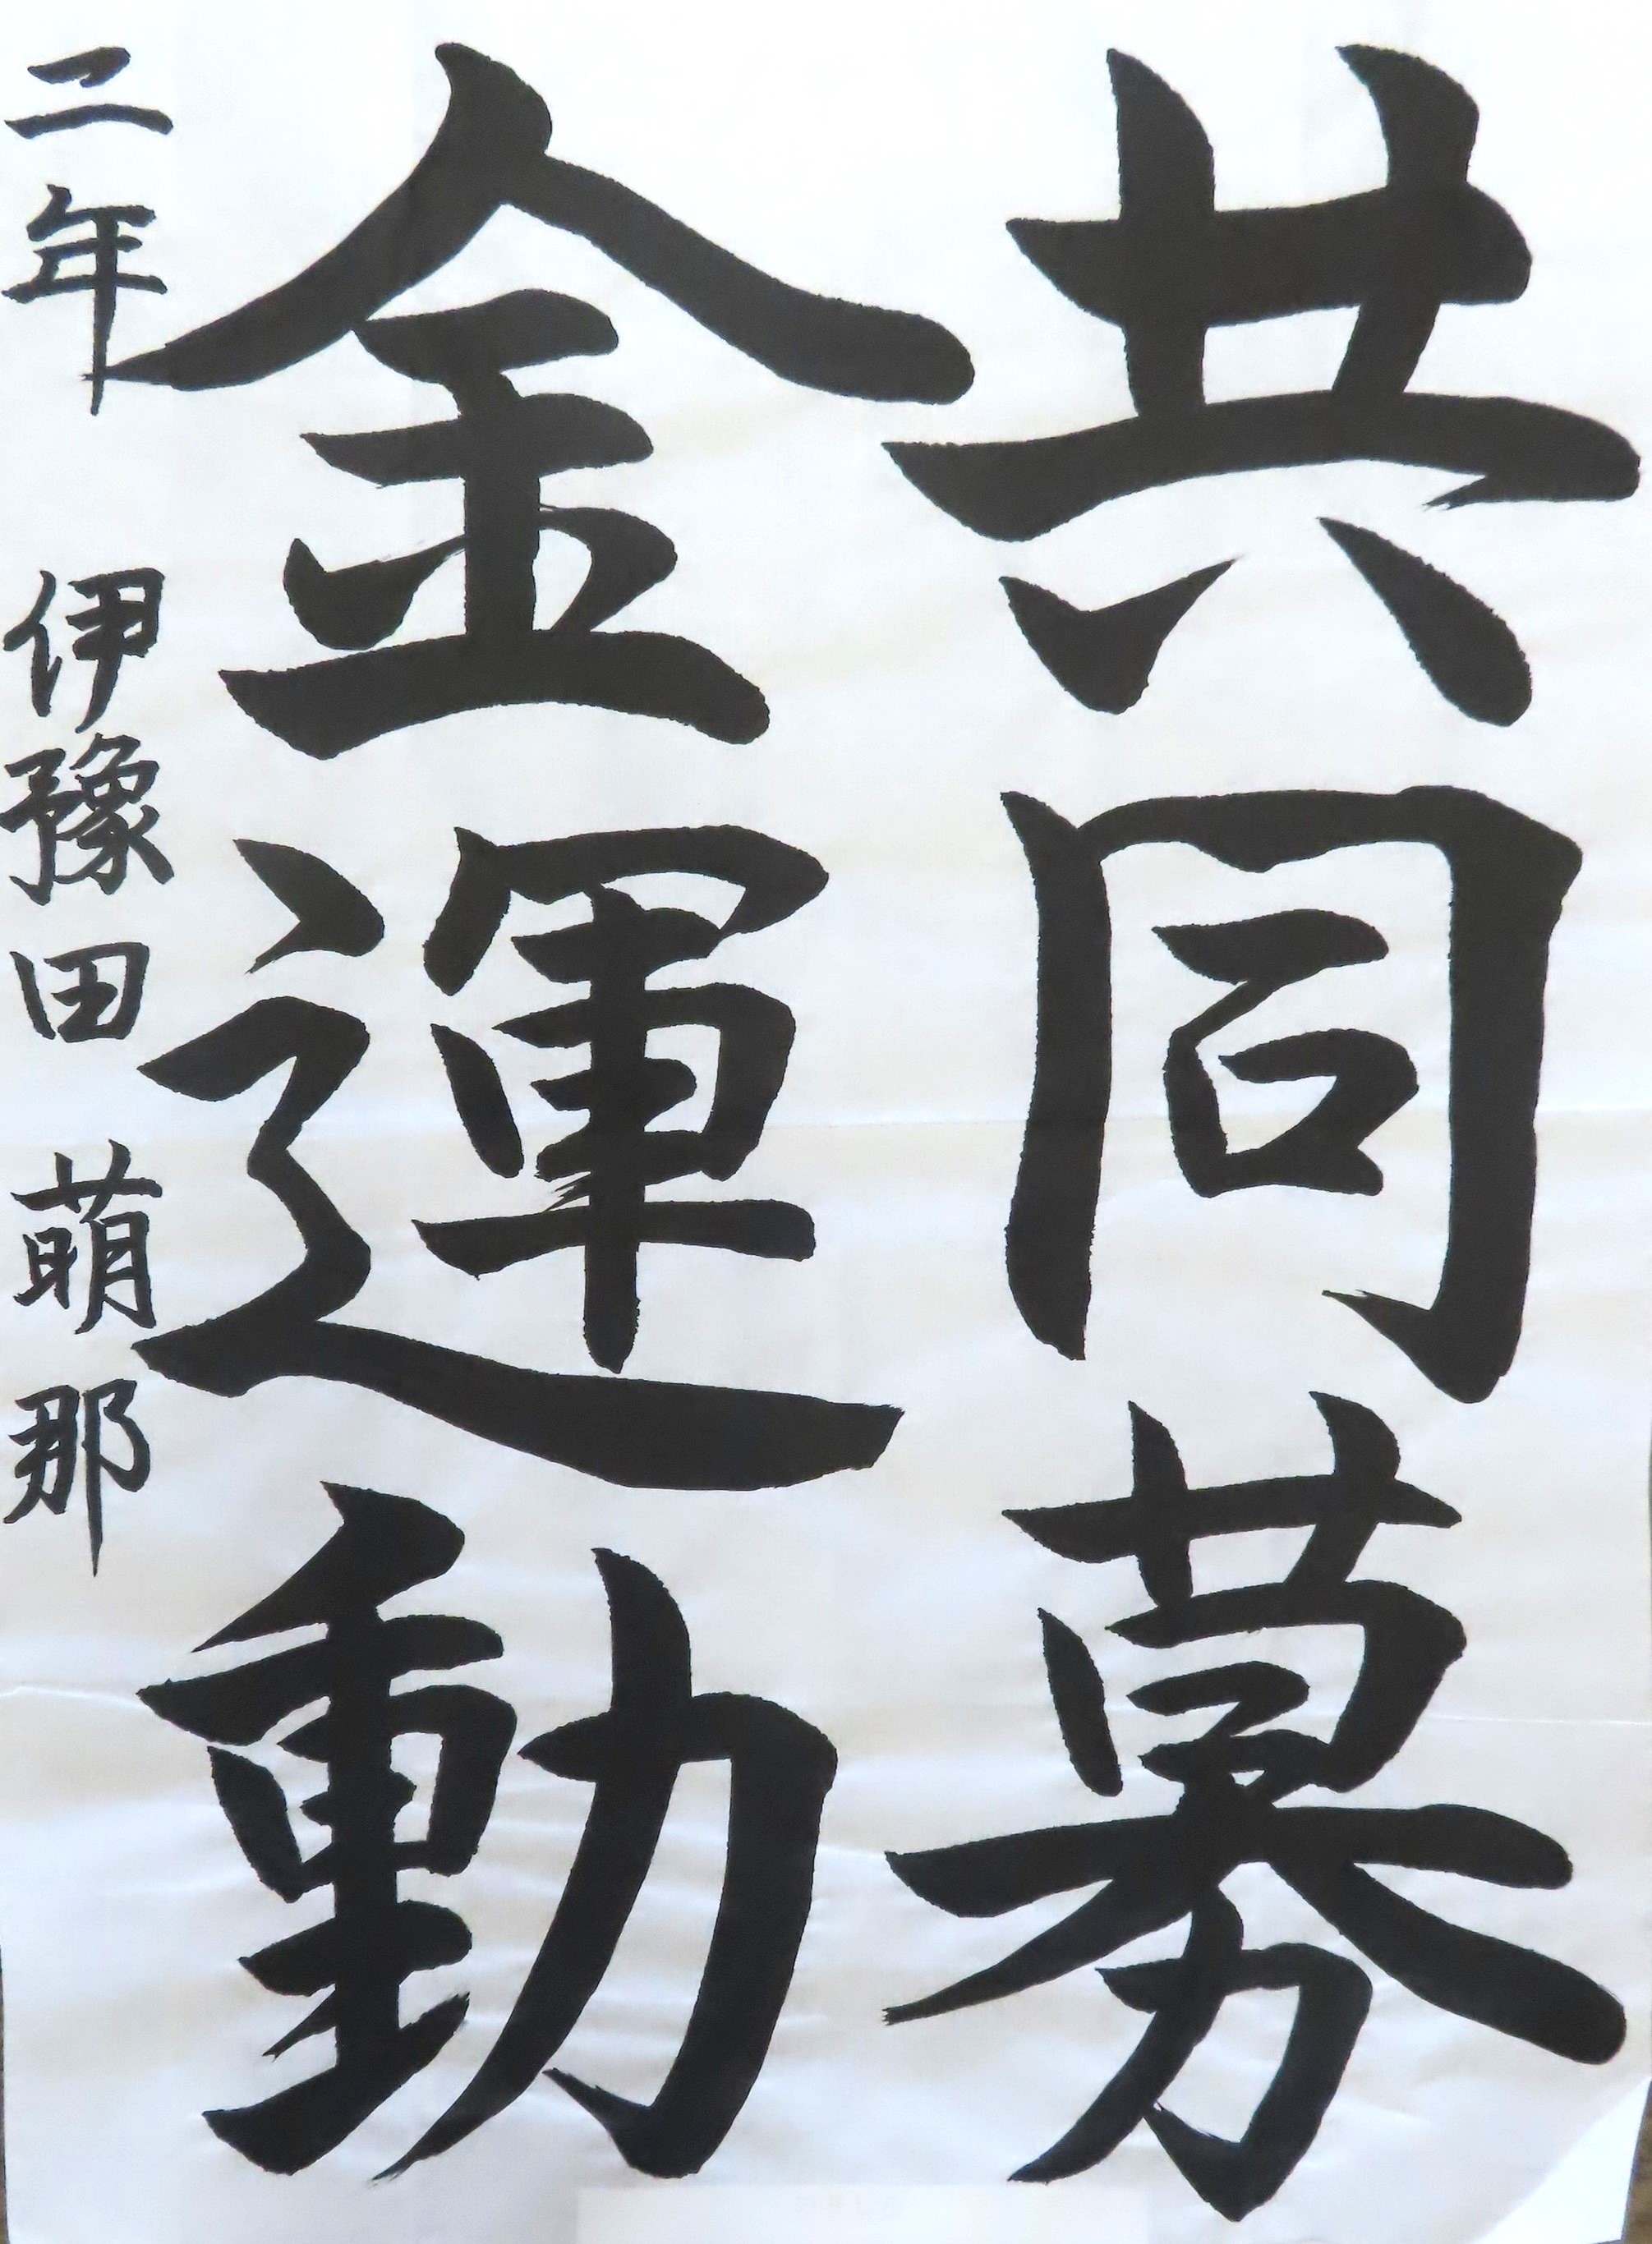 共同募
金運動
二年 伊豫田 萌那